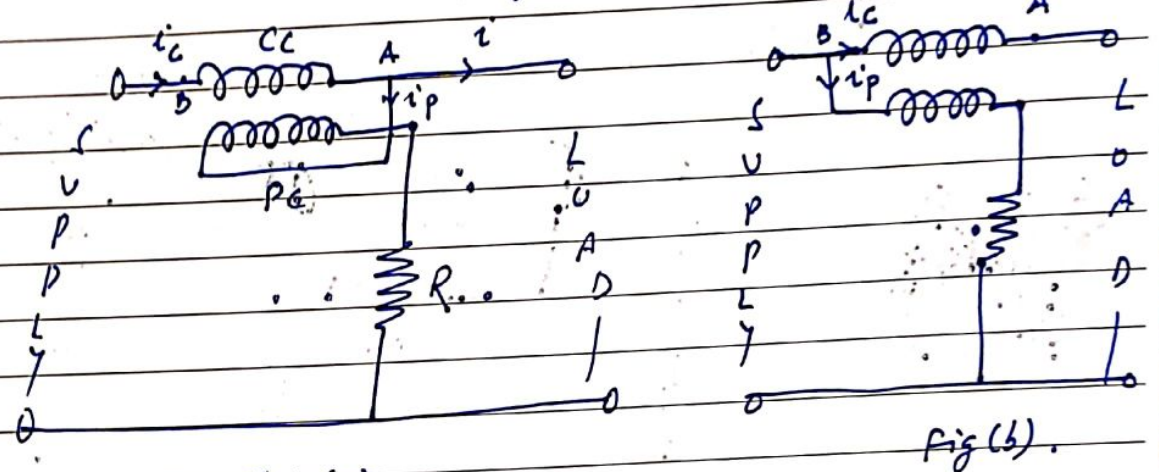 ic CC A i
B
ip
PC
R
SUPPLY
LOAD
B ic A
ip
SUPPLY
LOAD
fig (b).